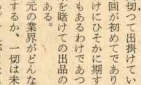 切つて出掛けてい
回が初めてであり
けにひそかに期す
もあるわけであつ
を賭けての出品の
ある。
元の業界がどんな
するか、一切は未